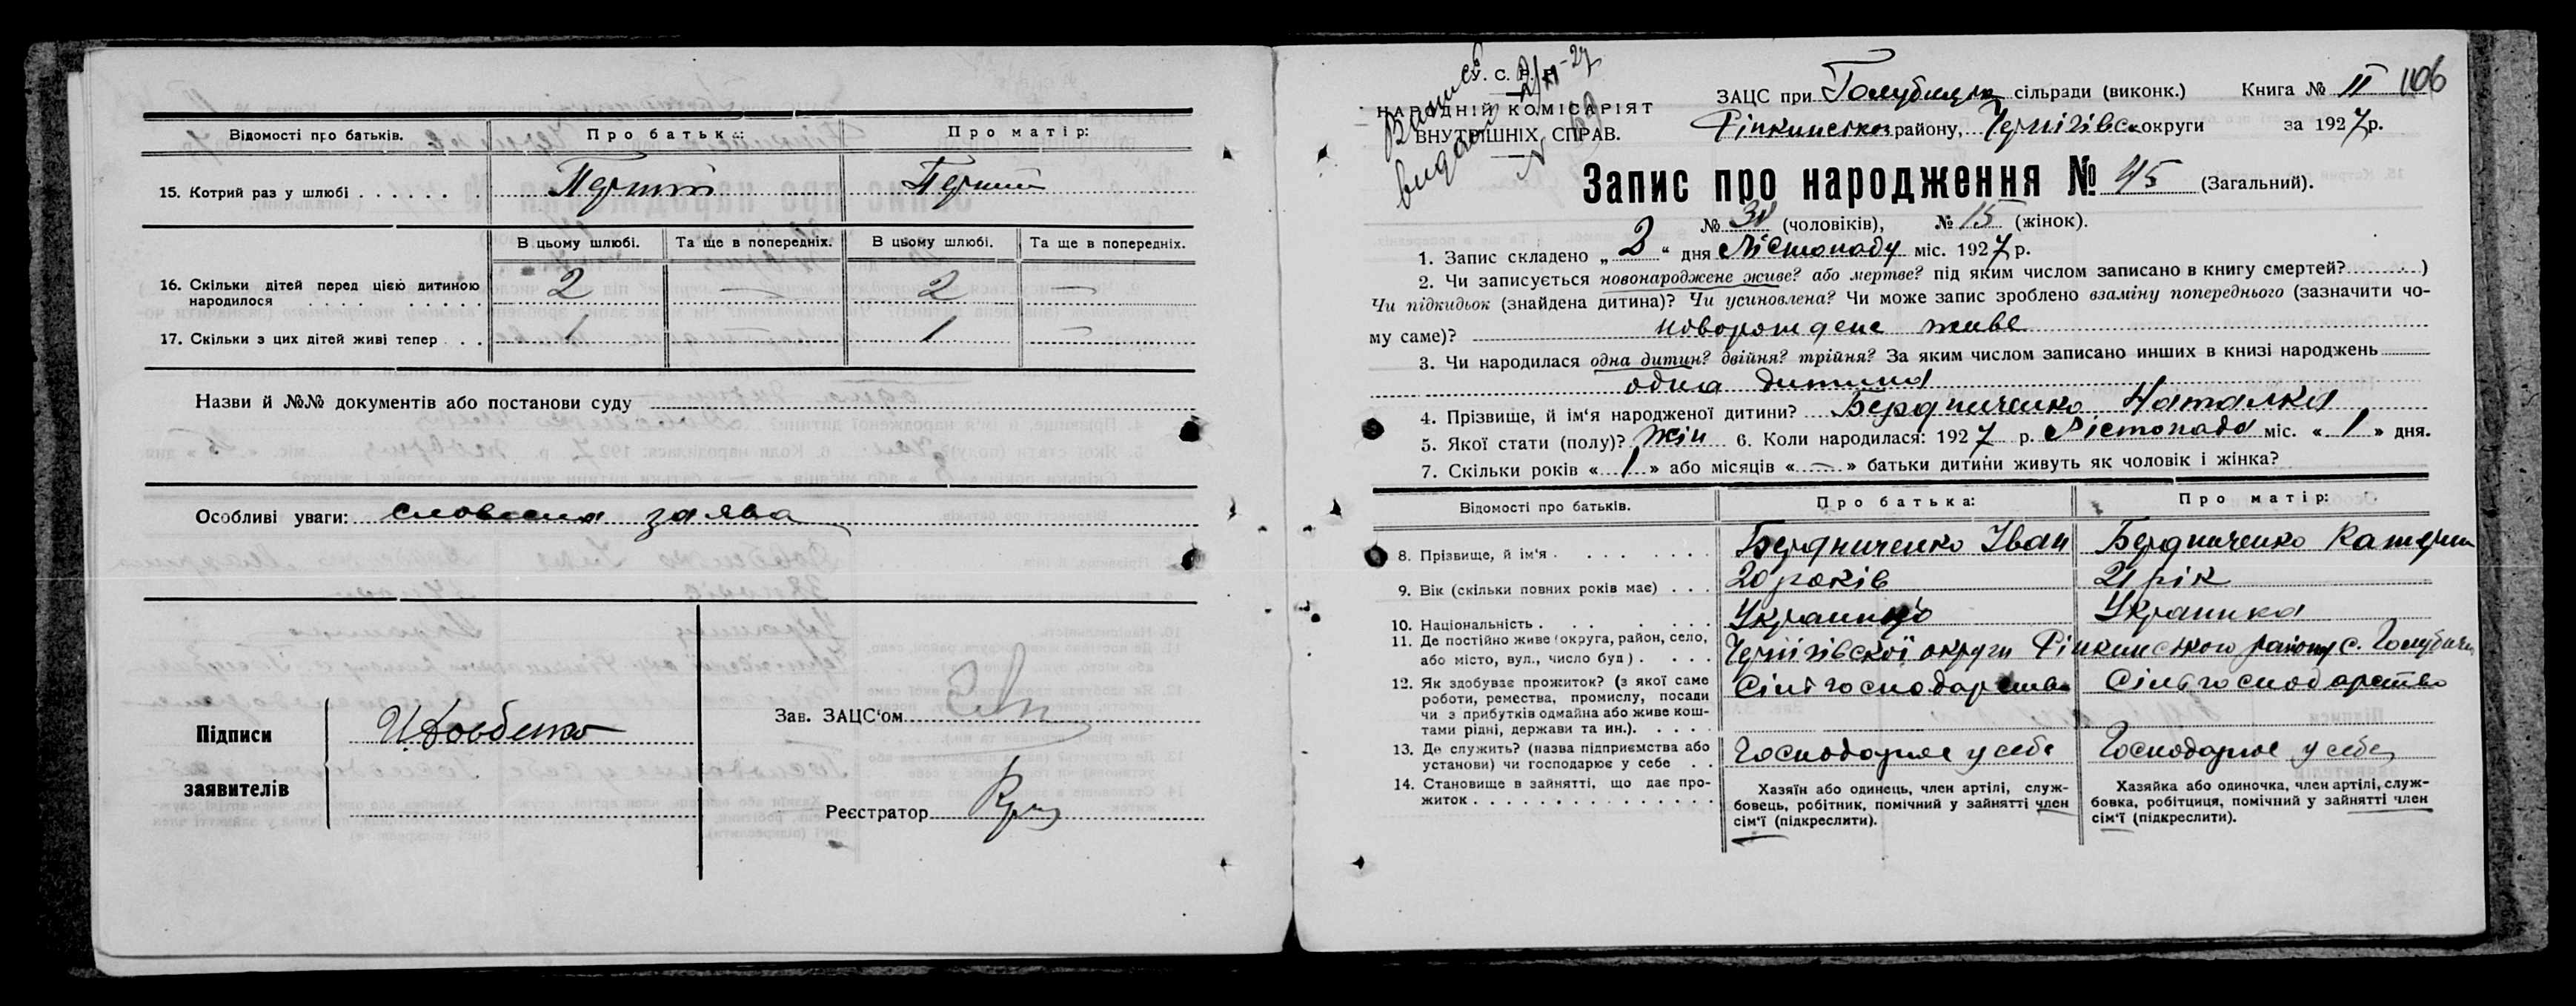 Відомості про батьків. Про батька: Про матір:
15. Котрий раз у шлюбі . . . . . . . Перший Перший
В цьому шлюбі. Та ще в попередніх. В цьому шлюбі. Та ще в попередніх.
16. Скільки дітей перед цією дитиною
народилося . . . . . . . . 2 — 2 —
17. Скільки з цих дітей живі тепер . . . 1 — 1 —
Назви й №№ документів або постанови суду
Особливі уваги: словесна заява
Підписи
заявителів
И. Довбенко
Зав. ЗАЦС'ом
Реєстратор
У. С. Р. Р.
НАРОДНІЙ КОМІСАРІЯТ
ВНУТРІШНІХ СПРАВ.
ЗАЦС при Голубицьк сільради (виконк.) Книга № II 106
Ріпкинськ району, Чернігівськ округи за 1927 р.
Запис про народження № 45 (Загальний).
№ 30 (чоловіків), № 15 (жінок).
1. Запис складено „ 2 “ дня Лістопаду міс. 1927 р.
2. Чи записується новонароджене живе? або мертве? під яким числом записано в книгу смертей? )
Чи підкидьок (знайдена дитина)? Чи усиновлена? Чи може запис зроблено взаміну попереднього (зазначити чо-
му саме)? новорождене живе
3. Чи народилася одна дитин? двійня? трійня? За яким числом записано инших в книзі народжень
одна дитина
4. Прізвище, й ім'я народженої дитини? Бердниченко Наталка
5. Якої стати (полу)? жін 6. Коли народилася: 1927 р. Лістопада міс. « 1 » дня.
7. Скільки років « 1 » або місяців « — » батьки дитини живуть як чоловік і жінка?
Відомості про батьків. Про батька: Про матір:
8. Прізвище, й ім'я . . . . . . Бердниченко Іван Бердниченко Катерин
9. Вік (скільки повних років має) . . . 20 років 21 рік
10. Національність . . . . . . Українець Українка
11. Де постійно живе (округа, район, село,
або місто, вул., число буд) . . . . Чернігівської округи Ріпкинського району с. Голубичі
12. Як здобуває прожиток? (з якої саме
роботи, ремества, промислу, посади
чи з прибутків одмайна або живе кош-
тами рідні, держави та ин.). . . . . Сільгосподарство Сільгосподарство
13. Де служить? (назва підприємства або
установи) чи господарює у себе . . Господарює у себе Господарює у себе
14. Становище в зайнятті, що дає про-
житок . . . . . . . . . . . . . . .
Хазяїн або одинець, член артілі, служ-
бовець, робітник, помічний у зайнятті член
сім'ї (підкреслити).
Хазяйка або одиночка, член артілі, служ-
бовка, робітциця, помічний у зайнятті член
сім'ї (підкреслити).